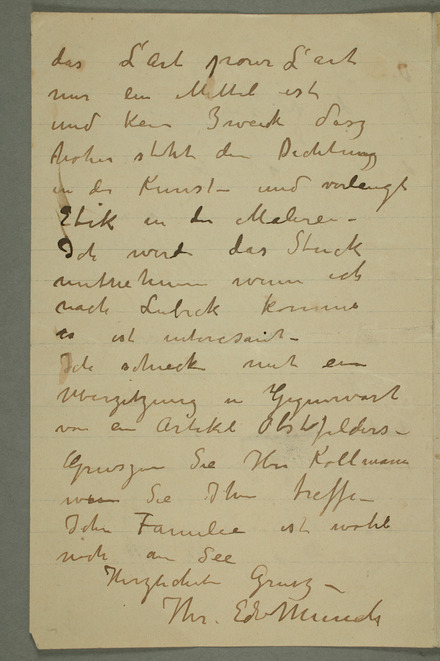 das L'Art pour L'art
nur ein Mittel ist
und kein Zweck dasz
hoher steht den Dichtung
in der Kunst – und verlangt
Etik in der Malerei –
Ich werde das Stuck
mitnehmen wenn ich
nach Lubeck komme
es ist interesant –
Ich schicke mit ein
Uberzitzung in Gegenwart
von ein Artikel Obstfelders –
Gruszen Sie Hrn Kollmann
wenn Sie Ihm treffe –
Ihr Familie ist wohl
noch an See
Herzlichen Grusz –
Ihr. Edv Munch